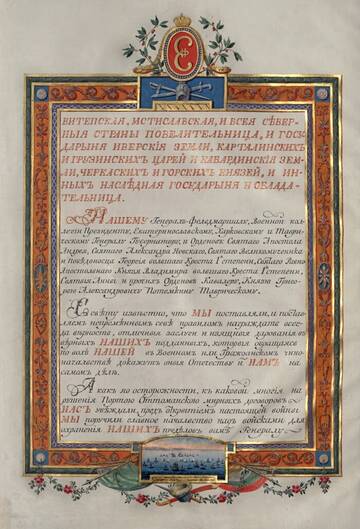 Е
ВИТЕПСКАЯ, МСТИСЛАВСКАЯ, И ВСЕЯ СѢВЕР-
НЫЯ СТРАНЫ ПОВЕЛИТЕЛЬНИЦА, И ГОСУ-
ДАРЫНЯ ИВЕРСКІЯ ЗЕМЛИ, КАРТАЛИНСКИХЪ
И ГРУЗИНСКИХЪ ЦАРЕЙ И КАБАРДИНСКІЯ ЗЕМ-
ЛИ, ЧЕРКАСКИХЪ И ГОРСКИХЪ КНЯЗЕЙ, И ИН-
НЫХЪ НАСЛѢДНАЯ ГОСУДАРЫНЯ И ОБЛАДА-
ТЕЛЬНИЦА.
НАШЕМУ Генералъ-Фельдмаршалу, Военной кол-
легіи Президенту, Екатеринославскому, Харковскому и Таври-
ческому Генералу Губернатору, и Орденовъ Святаго Апостола
Андрея, Святаго Александра Невскаго, Святаго Великомученика
и побѣдоносца Георгія большаго Креста I степени, Святаго Равно
Апостольнаго Князя Владимира большаго Креста I степени,
Святыя Анны и другихъ Орденовъ Кавалеру, Князю Григо-
рію Александровичу Потемкину Таврическому.
Всему свѣту извѣстно, что МЫ поставляли, и постав-
ляемъ непремѣннымъ себѣ правиломъ награждать всег-
да вѣрность, отличныя заслуги и изящныя дарованія въ
вѣрныхъ НАШИХЪ подданныхъ, которыя обращаяся
по волѣ НАШЕЙ въ Военномъ или Гражданскомъ чино-
началствѣ докажутъ оныя Отечеству и НАМЪ на
самомъ дѣлѣ.
А какъ по осторожности, къ каковой многія на-
рушенія Портою Оттоманскою мирныхъ договоровъ
НАСЪ убѣждали, предъ открытіемъ настоящей войны
МЫ поручили главное началство надъ войсками для
охраненія НАШИХЪ предѣловъ вамъ Генералу